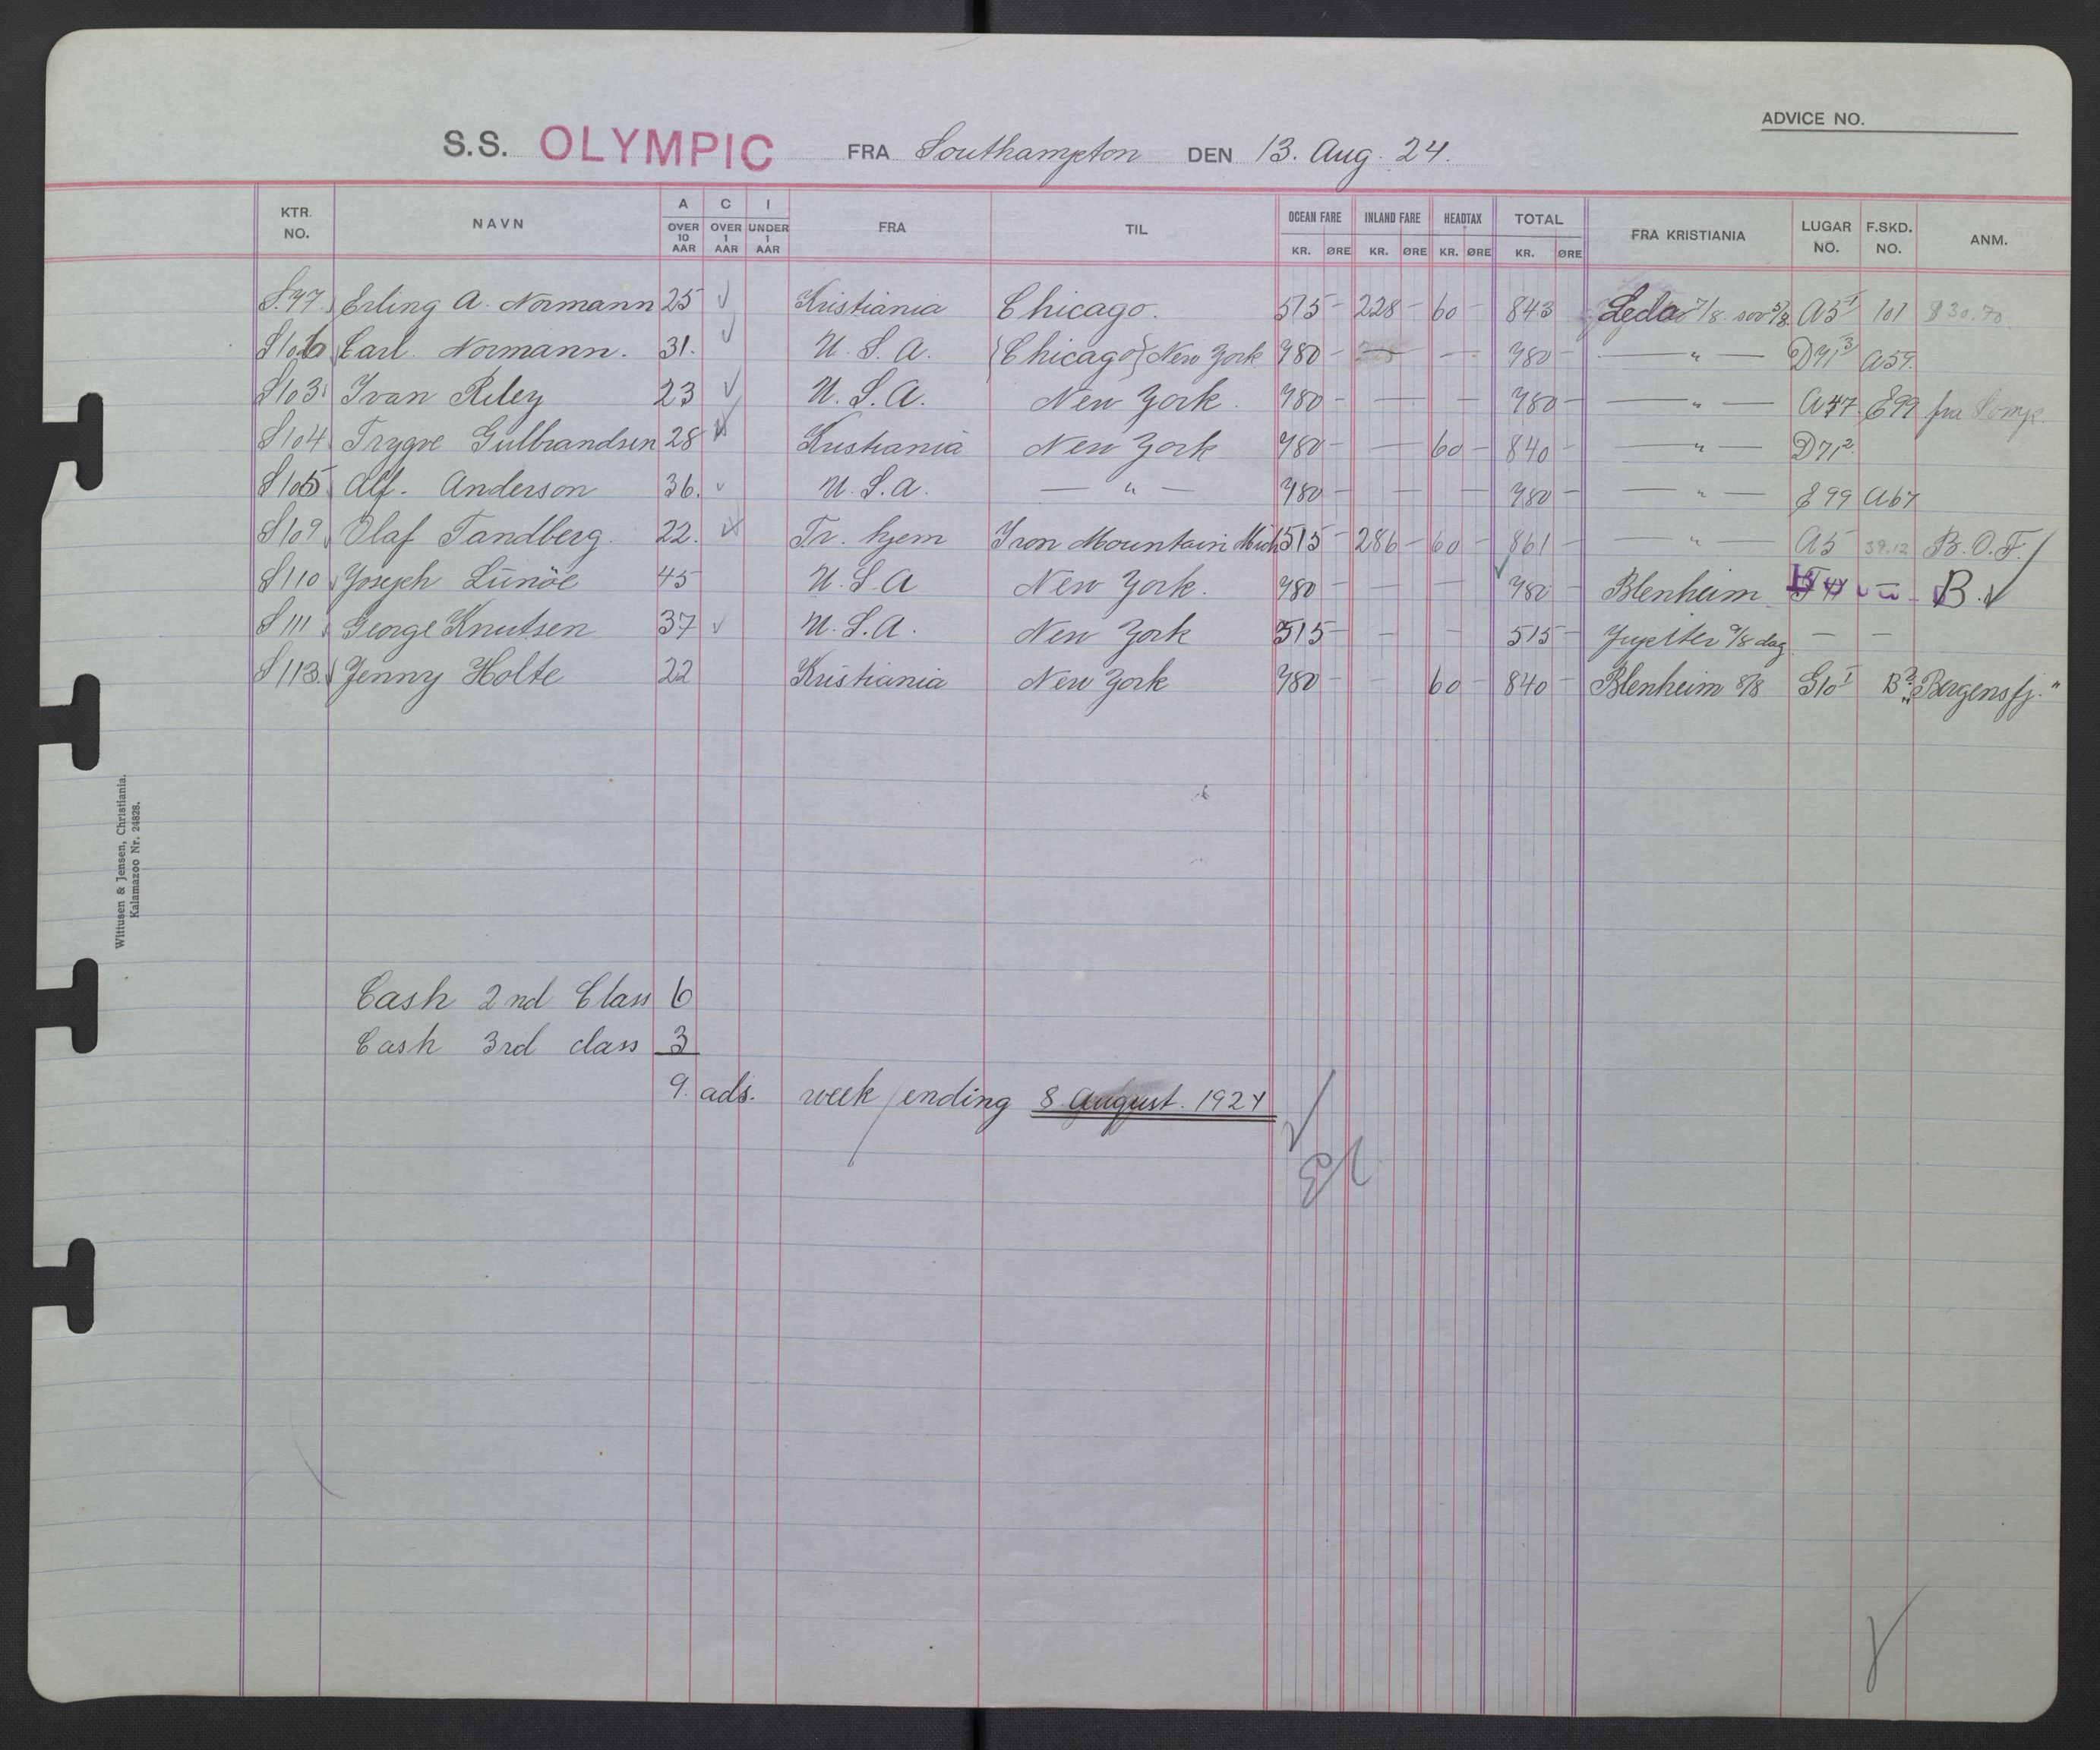 ADVICE NO.
S.S. OLYMPIC FRA Southampton DEN 13. Aug. 24.
KTR. NO. NAVN A OVER 10 AAR C OVER 1 AAR I UNDER 1 AAR FRA TIL OCEAN FARE KR. ØRE INLAND FARE KR. ØRE HEADTAX KR. ØRE TOTAL KR. ØRE FRA KRISTIANIA LUGAR NO. F.SKD. NO. ANM.
S.77. Erling A. Normann 25 Kristiania Chicago. 515 - 228 - 60 - 843 Leda 7/8 A5 101 830.70
S106 Carl Normann. 31. U.S.A. (Chicago) New York 780 - — — 780 - — " — D71 3 A59.
S103 Ivan Riley 23 U.S.A. New York. 780 - — - 780 - — " — A77 E99 fra
S104 Trygve Gulbrandsen 28 Kristiania New York 780 - — 60 - 840 - — " — D71 2.
S105 Alf. Anderson 36. U.S.A. — " — 780 - — - 780 - — " — E99 A67
S109 Olaf Tandberg. 22. Tr. hjem Iron Mountain Mich 515 - 286 - 60 - 861 - — " — A5 39.12 B.O.F.
S110 Joseph Lunöe 45 U.S.A New York. 780 - — - 780 - Blenheim B.
S111 George Knutsen 37 U.S.A. New York 515 - - - 515 - Jupiter 9/8 dag — —
S113. Jenny Holte 22 Kristiania New York 780 - - 60 - 840 - Blenheim 8/8 G10 I B? "Bergensfj."
Wittusen & Jensen, Christiania.
Kalamazoo Nr. 24828.
Cash 2nd Class 6
Cash 3rd class 3
9. ads. week ending 8 August. 1924